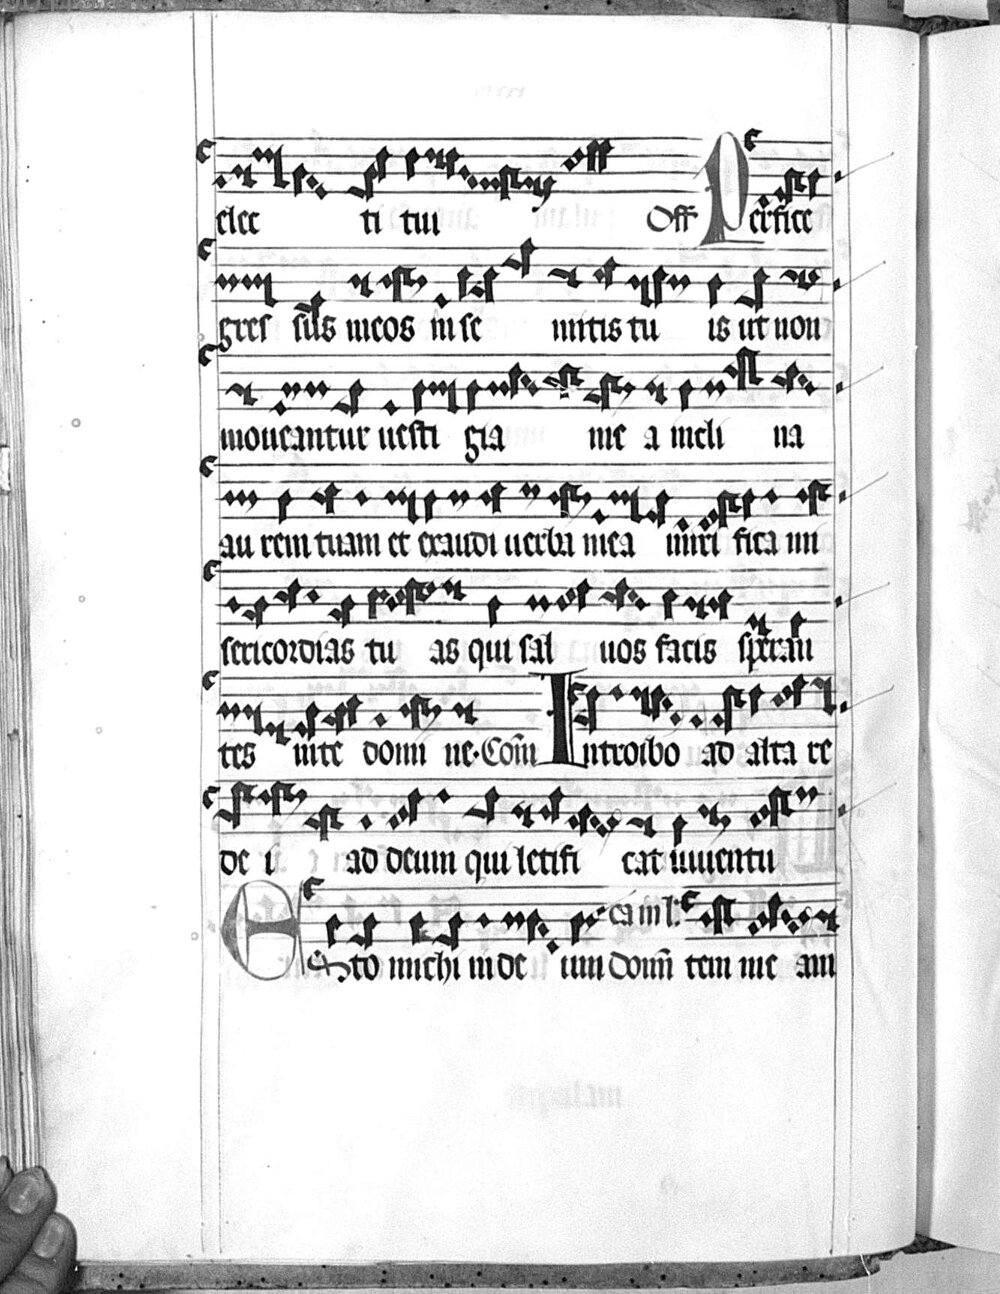 elec ti tui Off Perfice
gres sus meos in se mitis tu is ut non
moveantur vesti gia me a incli na
au rem tuam et exaudi verba mea miri fica mi
sericordias tu as qui sal vos facis speran
tes in te domi ne. Com Introibo ad alta re
de i ad deum qui letifi cat iuventu
Esto michi in de um dom tem me am
ca in l: